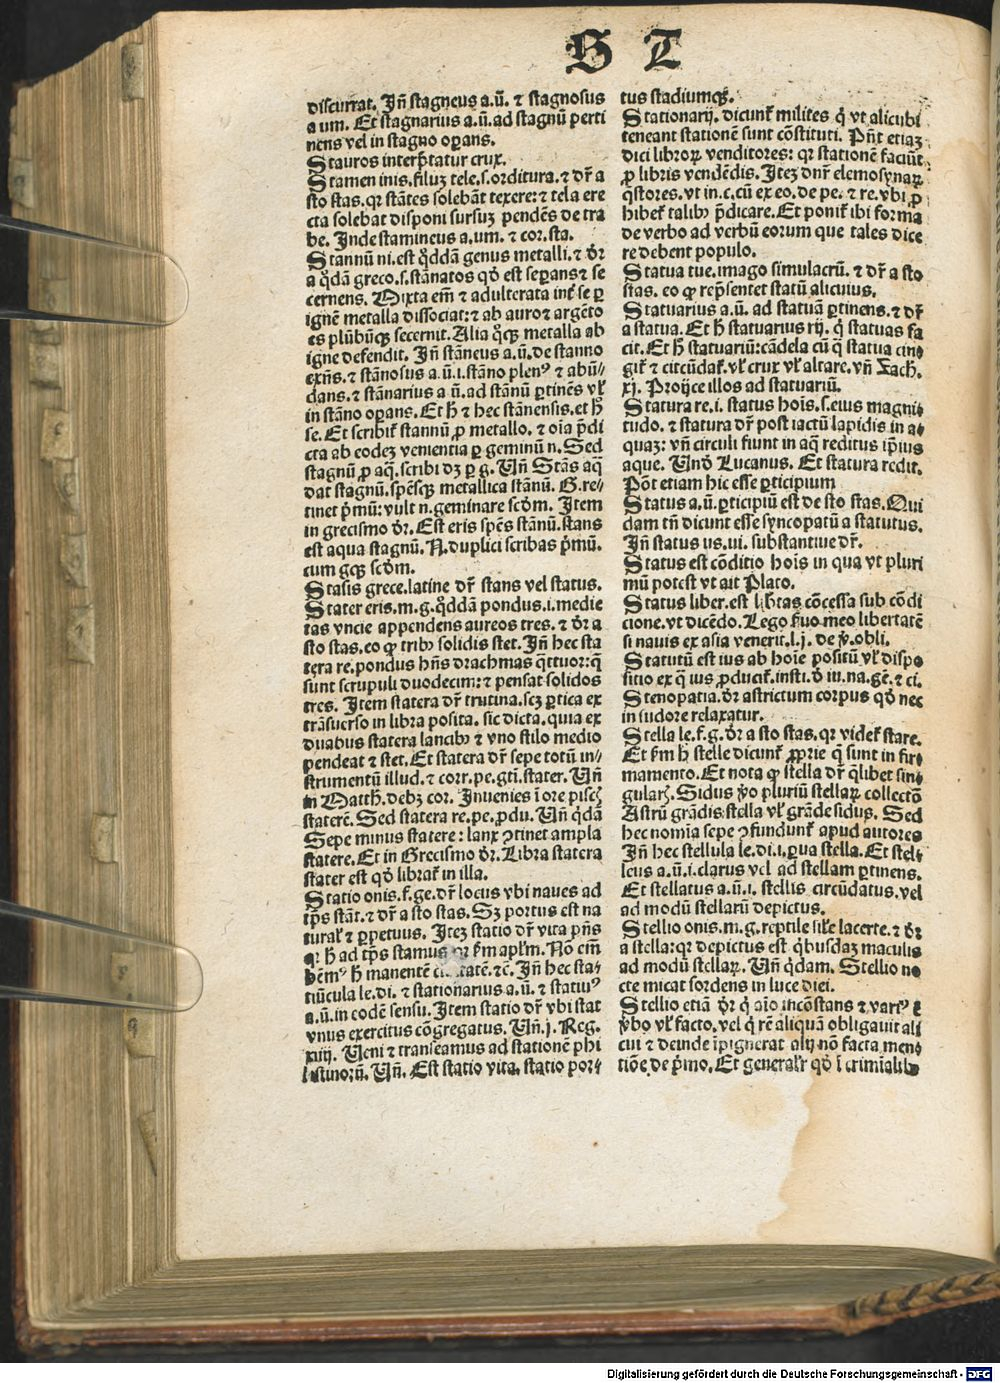 S T
discurrat. Jñ stagneus a.ū. ⁊ stagnosus
a um. Et stagnarius a.ū. ad stagnū perti
nens vel in stagno oꝑans.
Stauros interp̄tatur crux.
Stamen inis. filuꝫ tele.s.orditura.⁊ dr̄ a
sto stas.qꝛ stātes solebāt texere:⁊ tela ere
cta solebat disponi sursuꝫ pendēs de tra
be. Inde stamineus a.um. ⁊ cor.sta.
Stannū ni.est q̊ddā genus metalli.⁊ dr̄
a q̊dā greco.s.stānatos qd̓ est seꝑans⁊ se
cernens. Mixta em̄ ⁊ adulterata int̓ se ꝑ
ignē metalla dissociat:⁊ ab auro⁊ argēto
es plūbūqꝫ secernit. Alia q̊qꝫ metalla ab
igne defendit. Jñ stāneus a.ū.de stanno
exñs.⁊ stānosus a.ū.i.stāno plenꝰ ⁊ abū
dans.⁊ stānarius a.ū.ad stānū ꝑtinēs vl̓
in stāno oꝑans. Et h̄ ⁊ hec stānensis.et h̄
se. Et scribit̓ stannū ꝓ metallo.⁊ oīa p̄di
cta ab eodeꝫ veniētia ꝑ geminū n. Sed
stagnū ꝓ aq̄.scribi dꝫ ꝑ g. Uñ Stās aq̄
dat stagnū.spēsqꝫ metallica stānū. G.re
tinet p̄mū: vult n.geminare scd̓m. Item
in grecismo dr̄. Est eris spēs stānū.stans
est aqua stagnū. N.duplici scribas p̄mū.
cum gqꝫ scd̓m.
Stasis grece.latine dr̄ stans vel status.
Stater eris.m.g.q̊ddā pondus.i.medie
tas vncie appendens aureos tres.⁊ dr̄ a
sto stas.eo ꝙ tribꝫ solidis stet. Jñ hec sta
tera re.pondus hñs drachmas q̄ttuor:q̄
sunt scrupuli duodecim:⁊ pensat solidos
tres. Item statera dr̄ trutina.scꝫ ꝑtica ex
trāsuerso in libra posita. sic dicta.quia ex
duabus statera lancibꝫ ⁊ vno stilo medio
pendeat ⁊ stet. Et statera dr̄ sepe totū in
strumentū illud.⁊ corr.pe.gtī.stater. Uñ
in Matth̓.debꝫ cor. Inuenies ī ore pisc̄
staterē. Sed statera re.pe.ꝓdu. Uñ q̊dā
Sepe minus statere: lanx ꝯtinet ampla
statere. Et in Grecismo dr̄. Libra statera
stater est qd̓ librat̓ in illa.
Statio onis.f.ge.dr̄ locus vbi naues ad
tp̄s stāt.⁊ dr̄ a sto stas. Sꝫ portus est na
tural̓ ⁊ ꝑpetuus. Iteꝫ statio dr̄ vita p̄ñs
qꝛ h̄ ad tp̄s stamus p̄m apl̓m. Nō em̄
hēmꝰ h̄ manentē ciuitatē.⁊c̄. Jñ hec sta
tiūcula le.di. ⁊ stationarius a.ū.⁊ statiuꝰ
a.ū.in codē sensu. Item statio dr̄ vbi stat
vnus exercitus cōgregatus. Uñ.j. Reg.
xiiij. Ueni ⁊ transeamus ad stationē phi
listinorū. Uñ. Est statio vita. statio por
tus stadiumqꝫ.
Stationarij. dicunt̓ milites q̇ vt alicubi
teneant stationē sunt cōstituti. Pn̄t etiaꝫ
dici libroꝝ venditores: qꝛ stationē faciūt
ꝓ libris vendēdis. Iteꝫ dnr̄ elemosynaꝝ
q̄stores. vt in.c.cū ex eo.de pe.⁊ re.vbi ꝓ
hibet̓ talibꝫ p̄dicare. Et ponit̓ ibi forma
de verbo ad verbū eorum que tales dice
re debent populo.
Statua tue.imago simulacrū.⁊ dr̄ a sto
stas. eo ꝙ rep̄sentet statū alicuius.
Statuarius a.ū. ad statuā ꝑtinens.⁊ dr̄
a statua. Et h̄ statuarius rij. q̇ statuas fa
cit. Et h̄ statuariū:cādela cū q̄ statua cin
git̓ ⁊ circūdat̓. vl̓ crux vl̓ altare. vñ Zach̓.
xj. Proijce illos ad statuariū.
Statura re.i. status hoīs.s.eius magni
tudo.⁊ statura dr̄ post iactū lapidis in a
quaꝫ: vñ circuli fiunt in aq̄ reditus ip̄ius
aque. Und̓ Lucanus. Et statura redit.
Pōt etiam hic esse ꝑticipium
Status a.ū.ꝑticipiū est de sto stas. Qui
dam tñ dicunt esse syncopatū a statutus.
Jñ status us.ui. substantiue dr̄.
Status est cōditio hoīs in qua vt pluri
mū potest vt ait Plato.
Status liber.est lib̓tas cōcessa sub cōdi
cione.vt dicēdo. Lego s̓uo meo libertatē
si nauis ex asia venerit.l.j. de v̓.obli.
Statutū est ius ab hoīe positū vl̓ dispo
sitio ex q̄ ius ꝓducit̓.insti.d̓ iu.na.gē.⁊ ci.
Stenopatia.dr̄ astrictum corpus qd̓ nec
in sudore relaxatur.
Stella le.f.g.dr̄ a sto stas.qꝛ videt̓ stare.
Et p̄m h̄ stelle dicunt̓ ꝓprie q̄ sunt in fir
mamento. Et nota ꝙ stella dr̄ q̄libet sin
gulari᷒. Sidus v̓o pluriū stellaꝝ collectō
Astrū grādis stella vl̓ grāde sidus. Sed
hec nomīa sepe ꝯfundunt̓ apud autores
Jñ hec stellula le.di.i.ꝑua stella. Et stel
leus a.ū.i.clarus vel ad stellam ꝑtinens.
Et stellatus a.ū.i. stellis circūdatus. vel
ad modū stellarū depictus.
Stellio onis.m.g.reptile sil̓e lacerte.⁊ dr̄
a stella:qꝛ depictus est q̇busdaꝫ maculis
ad modū stellaꝝ. Uñ q̊dam. Stellio no
cte micat sordens in luce diei.
Stellio etiā dr̄ q̇ aīo incōstans ⁊ variꝰ ē
v̓bo vl̓ facto. vel q̇ rē aliquā obligauit ali
cui ⁊ deinde īpignerat alij nō facta men
tiōe de p̄mo. Et general̓r qd̓ ī criminalibꝫ
Digitalisierung gefördert durch die Deutsche Forschungsgemeinschaft - DFG